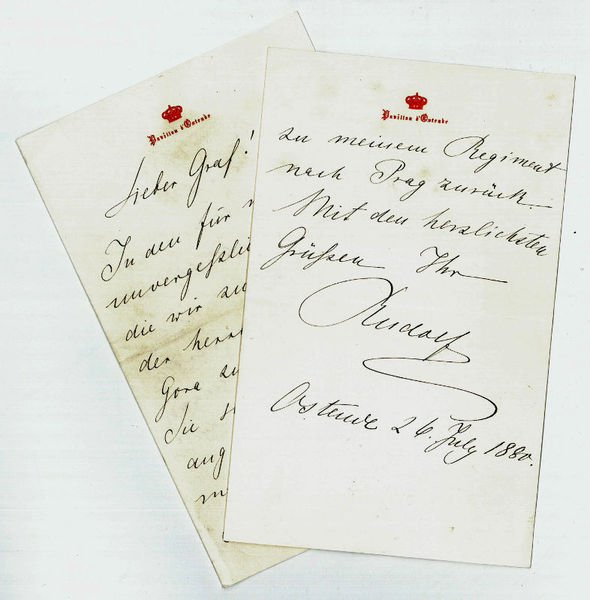 Pavillon d'Ostende
Lieber Graf!
In den für
unvergeßli
die wir zu
der herr
Gora zu
Sie s
ang
m
Pavillon d'Ostende
zu meinem Regiment
nach Prag zurück.
Mit den herzlichsten
Grüßen Ihr
Rudolf
Ostende 26. July 1880.